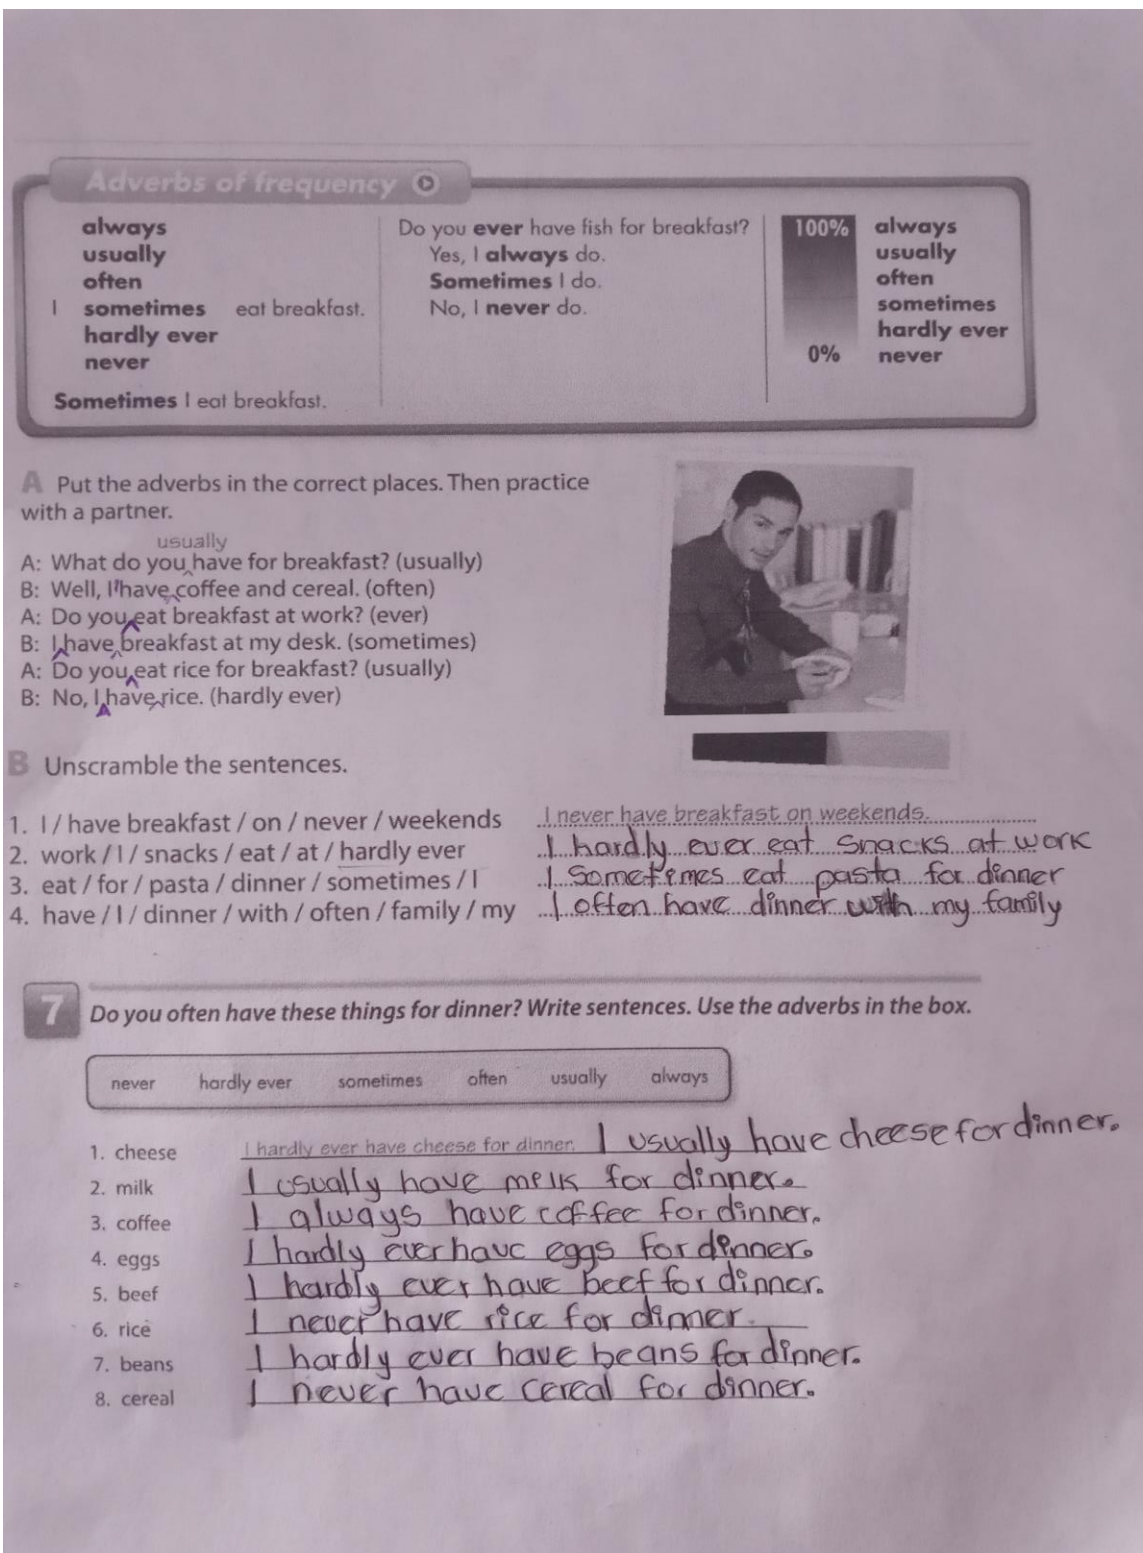 Adverbs of frequency
always
usually
often
I sometimes eat breakfast.
hardly ever
never
Sometimes I eat breakfast.
Do you ever have fish for breakfast?
Yes, I always do.
Sometimes I do.
No, I never do.
100% always
usually
often
sometimes
hardly ever
0% never
A Put the adverbs in the correct places. Then practice
with a partner.
usually
A: What do you have for breakfast? (usually)
B: Well, I have coffee and cereal. (often)
A: Do you eat breakfast at work? (ever)
B: I have breakfast at my desk. (sometimes)
A: Do you eat rice for breakfast? (usually)
B: No, I have rice. (hardly ever)
B Unscramble the sentences.
1. I / have breakfast / on / never / weekends I never have breakfast on weekends.
2. work / I / snacks / eat / at / hardly ever I hardly ever eat snacks at work
3. eat / for / pasta / dinner / sometimes / I I sometimes eat pasta for dinner
4. have / I / dinner / with / often / family / my I often have dinner with my family
7 Do you often have these things for dinner? Write sentences. Use the adverbs in the box.
never hardly ever sometimes often usually always
1. cheese I hardly ever have cheese for dinner. I usually have cheese for dinner.
2. milk I usually have melk for dinner.
3. coffee I always have coffee for dinner.
4. eggs I hardly ever have eggs for dinner.
5. beef I hardly ever have beef for dinner.
6. rice I never have rice for dinner.
7. beans I hardly ever have beans for dinner.
8. cereal I never have cereal for dinner.